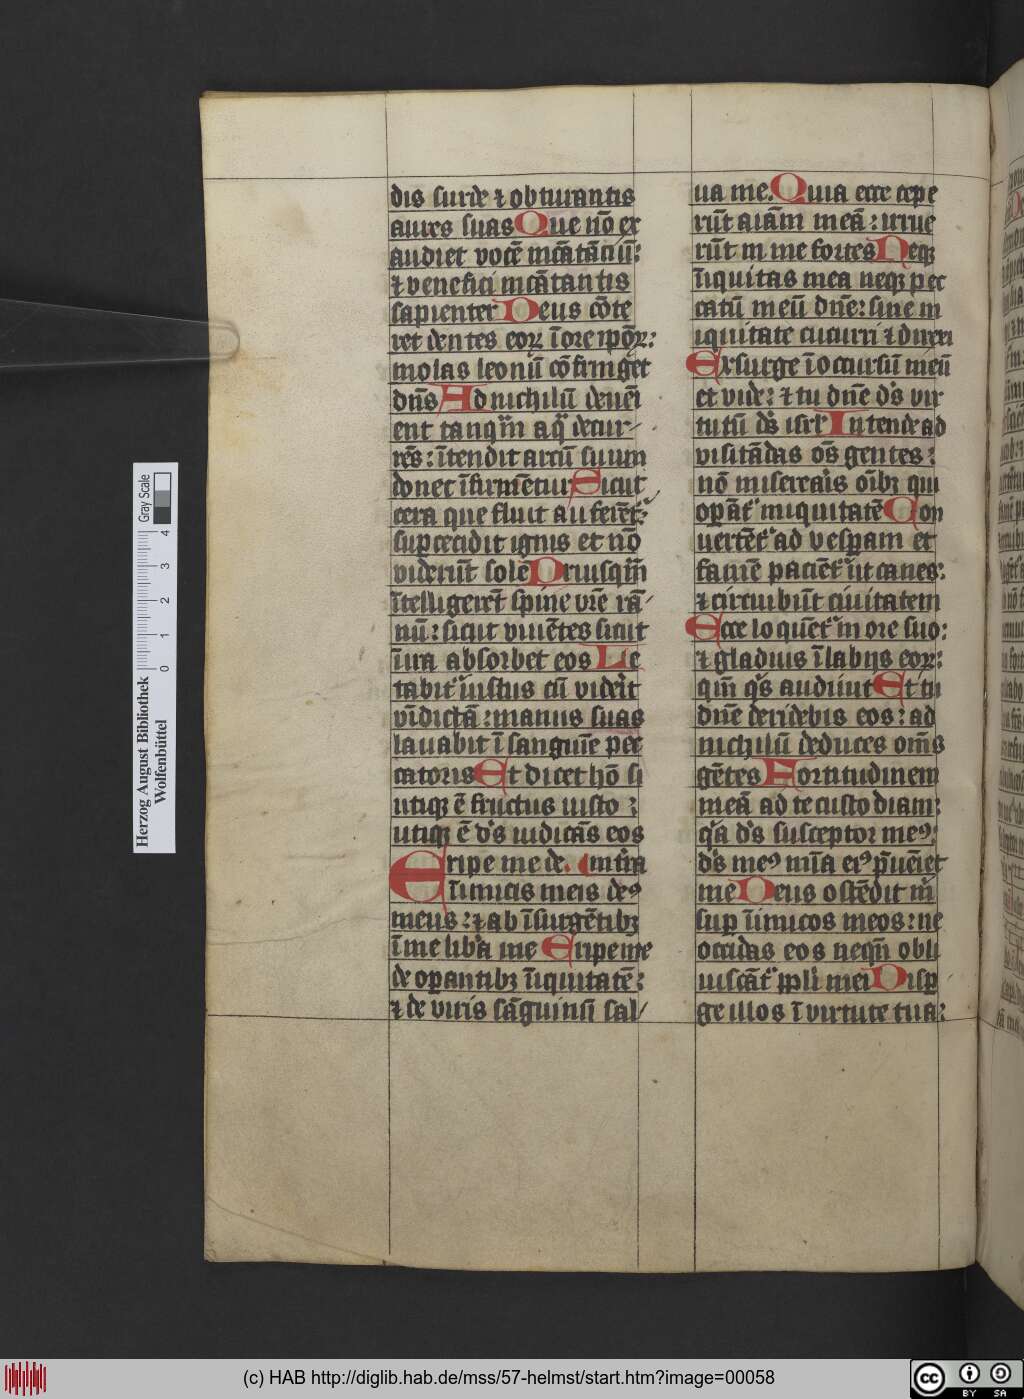 dis surde ⁊ obturantis
aures suas Que nō ex
audiet vocē incātāciū:
⁊ venefici incātantis
sapienter Deus cōte
ret dentes eoꝝ ī ore ipōꝝ:
molas leonū cōfringet
dn̄s Ad nichilū deueī
ent tanqͫ aqͣ decur
rēs: ītendit arcū suum
donec īfirmētur Sicut
cera que fluit auferēt᷑:
suꝑcecidit ignis et nō
viderūt solē Priusqͫ
ītelligerēt spine vr̄e rā
nū: sicut viuētes sicut
ī ira absorbet eos Le
tabit᷑ iustus cū viderit
vīdictā: manus suas
lauabit ī sanguīe pec
catoris Et dicet hō si
utiqꝫ ē fructus iusto:
utiqꝫ ē ds̄ iudicās eos
Eripe me de inimicis meis deꝰ
meus: ⁊ ab īsurgētibꝫ
ī me liba me Eripe me
de oꝑantibꝫ īiquitatē:
⁊ de viris sāguinū sal
ua me. Quia ecce cepe
rūt aīam meā: irrue
rūt in me fortes Neqꝫ
īiquitas mea neqꝫ pec
catū meū dn̄e: sine in
iquitate cucurri ⁊ direxi
Exsurge ī occursū meū
et vide: ⁊ tu dn̄e ds̄ vir
tutū ds̄ isrl̄ Intende ad
visitādas oēs gentes:
nō miserearis oībꝫ qui
oꝑāt᷑ iniquitatē Con
uertēt᷑ ad vesꝑam et
famē pacient᷑ ut canes:
⁊ circuibūt ciuitatem
Ecce loquēt᷑ in ore suo:
⁊ gladius ī labijs eoꝝ:
qm̄ qͥs audiuit Et tu
dn̄e deridebis eos: ad
nichilū deduces om̄s
gētes Fortitudinem
meā ad te custodiam:
qͥa ds̄ susceptor meꝰ:
ds̄ meꝰ mīa eiꝰ p̄ueīet
me Deus ostēdit m̄
suꝑ īimicos meos: ne
occidas eos neqn̄ obli
uiscāt᷑ ppl̄i mei Disꝑ
ge illos ī virtute tua:
Herzog August Bibliothek
Wolfenbüttel
0 1 2 3 4
Gray Scale
(c) HAB http://diglib.hab.de/mss/57-helmst/start.htm?image=00058
cc BY SA